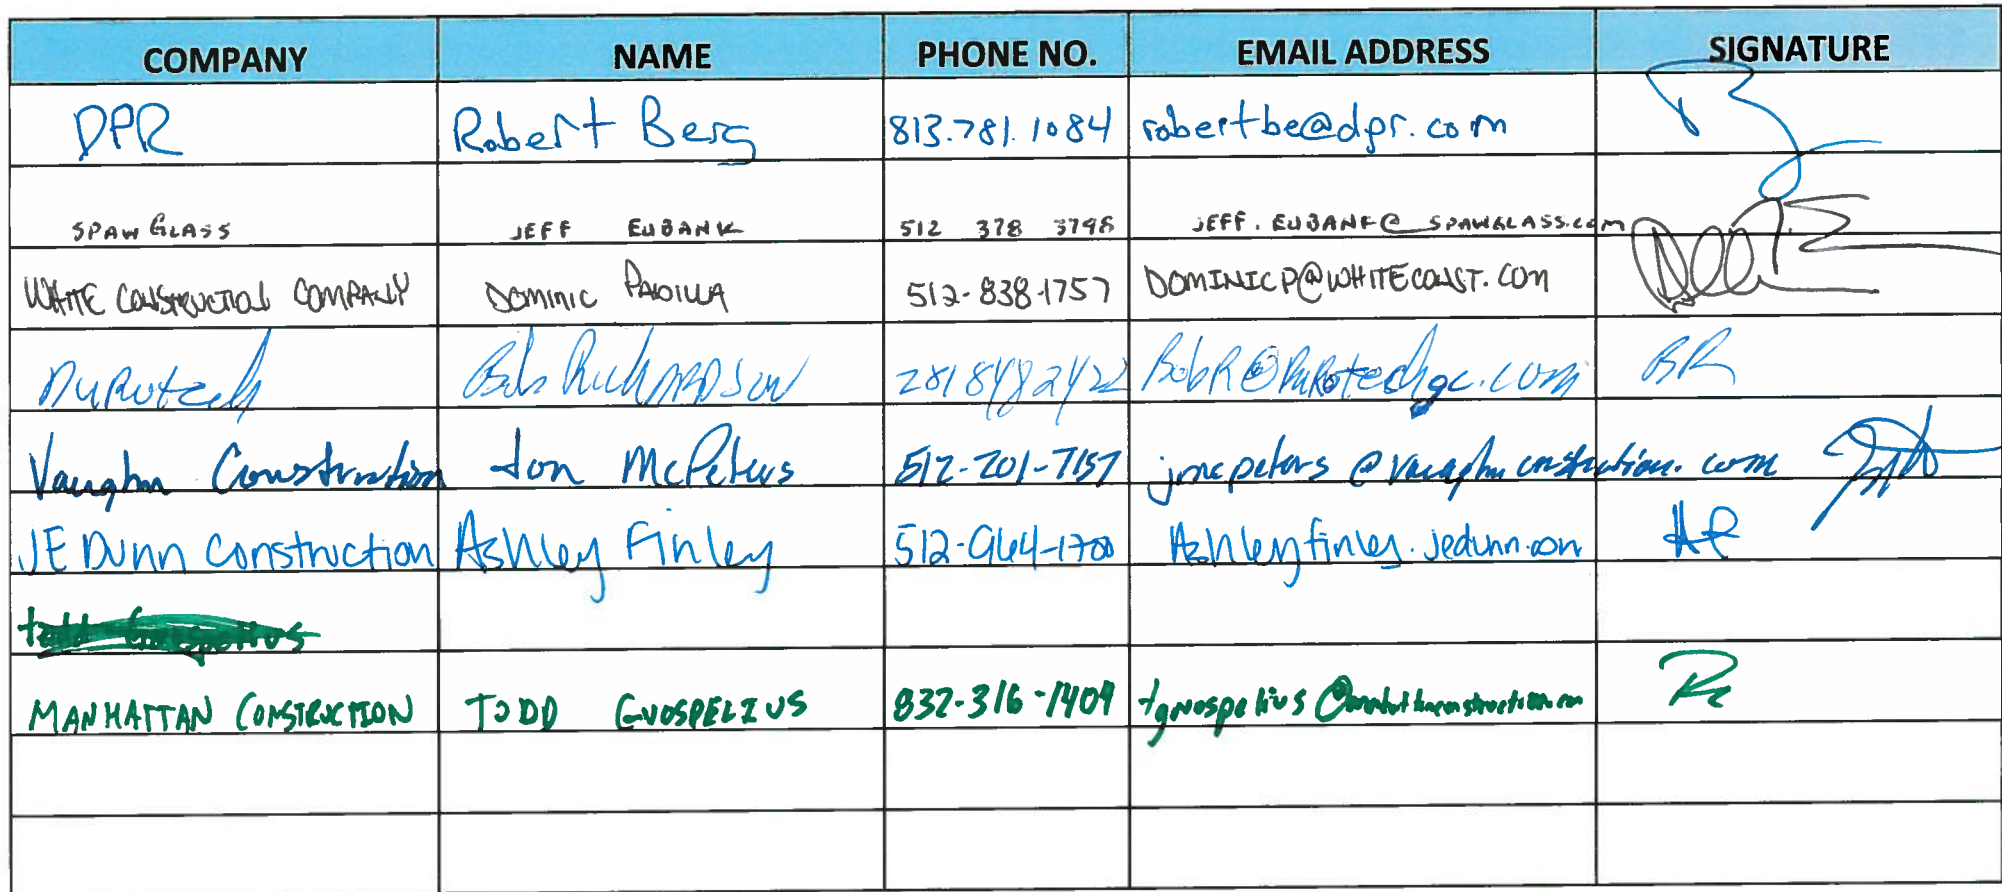 COMPANY NAME PHONE NO. EMAIL ADDRESS SIGNATURE
DPR Robert Berg 813.781.1084 robertbe@dpr.com
SPAWGLASS JEFF EUBANK 512 378 3798 JEFF.EUBANK@SPAWGLASS.COM
WHITE CONSTRUCTION COMPANY DOMINIC PADILLA 512-838-1757 DOMINICP@WHITECONST.COM
DUROTECH Bob RichARDSON 281 848 2422 BobR@DuROtechgc.com BR
Vaughn Construction Jon McPeters 512-201-7157 jmcpeters@vaughnconstruction.com
JE Dunn Construction Ashley Finley 512-964-1700 Ashleyfinley.jedunn.com AF
MANHATTAN CONSTRUCTION TODD GUOSPELIUS 832-316-1409